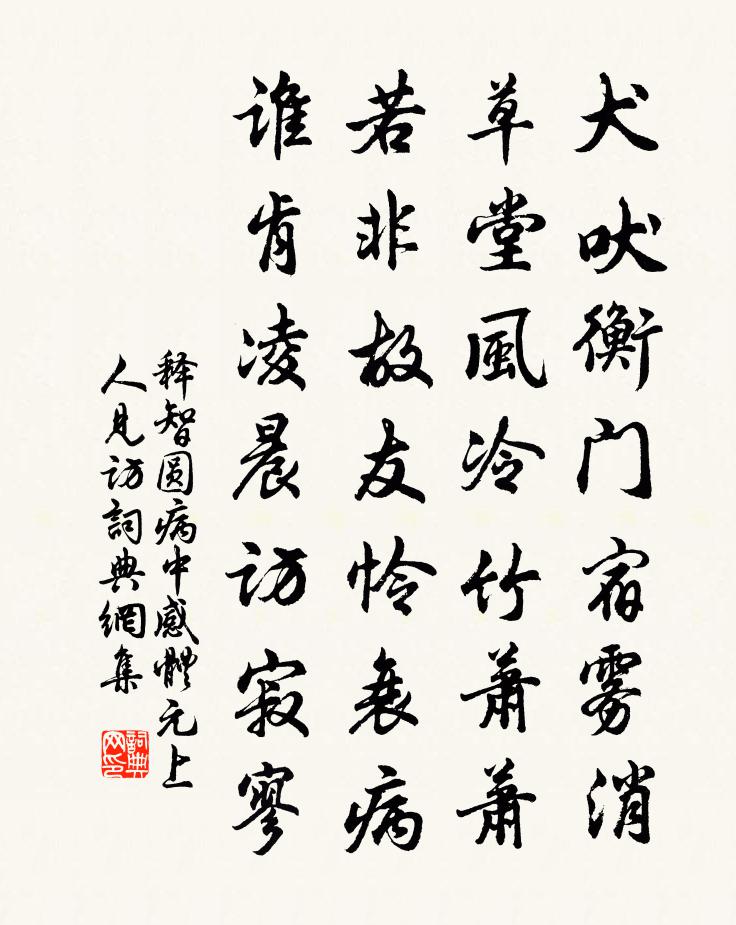 犬吠衡門宿雾消
草堂風冷竹蕭蕭
若非故友怜衰病
谁肯凌晨访寂寥
释智圆病中感體元上
人見访詞典網集
詞典
网印